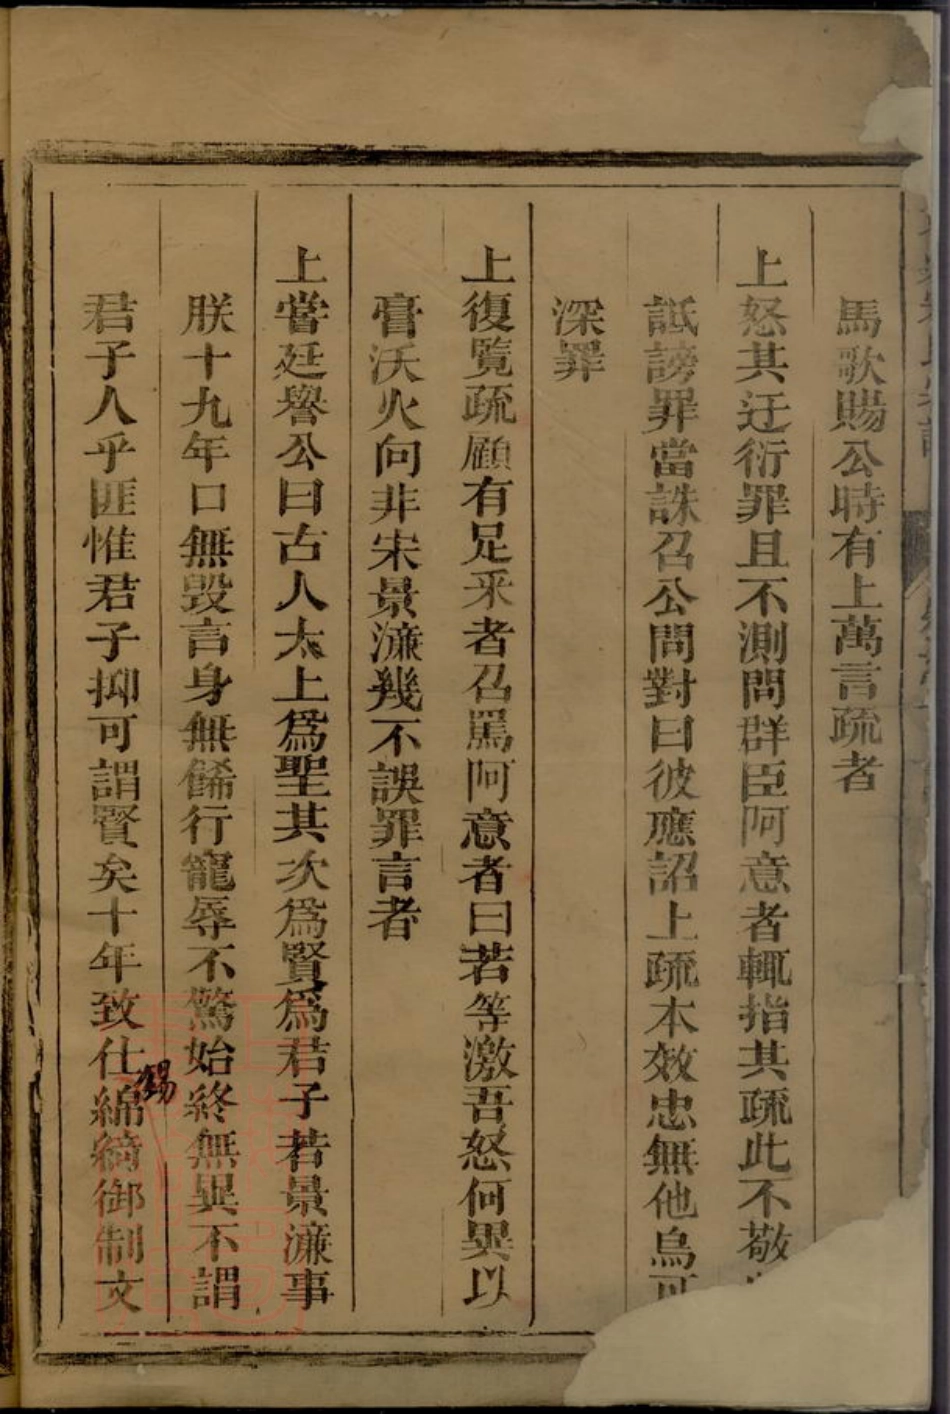 馬歌賜公時有上萬言疏者
上怒其迂衍罪且不測問群臣阿意者輒指其疏此不敬
詆謗罪當誅召公問對曰彼應詔上疏本效忠無他烏可
深罪
上復覧疏顧有足采者召罵阿意者曰若等激吾怒何異以
膏沃火向非宋景濂幾不誤罪言者
上嘗廷譽公曰古人太上爲聖其次爲賢爲君子若景濂事
朕十九年口無毁言身無餙行寵辱不驚始終無異不謂
君子人乎匪惟君子抑可謂賢矣十年致仕綿綺御制文
錫